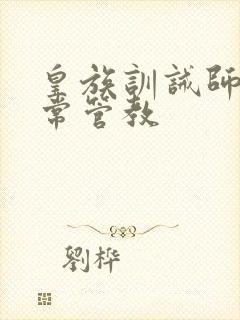 皇族訓誡師
常管教
劉桦